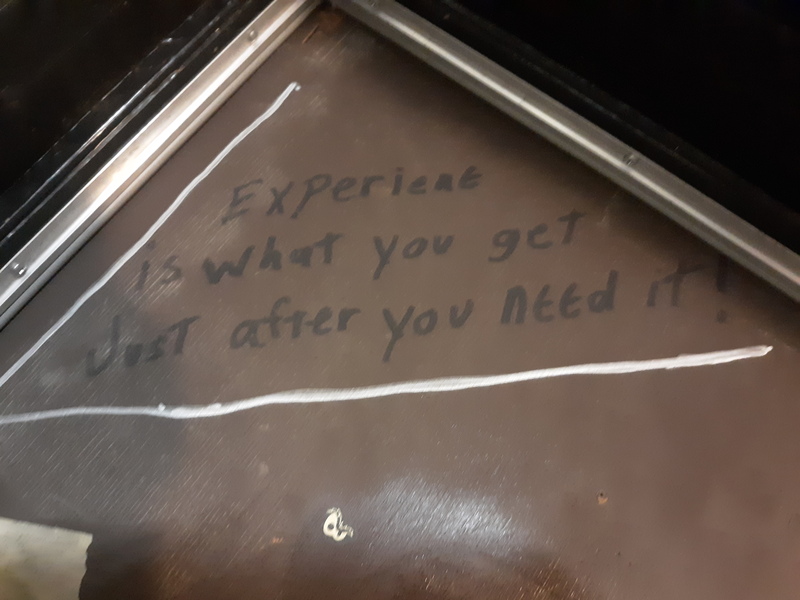 Experience
is what you get
Just after you need it!